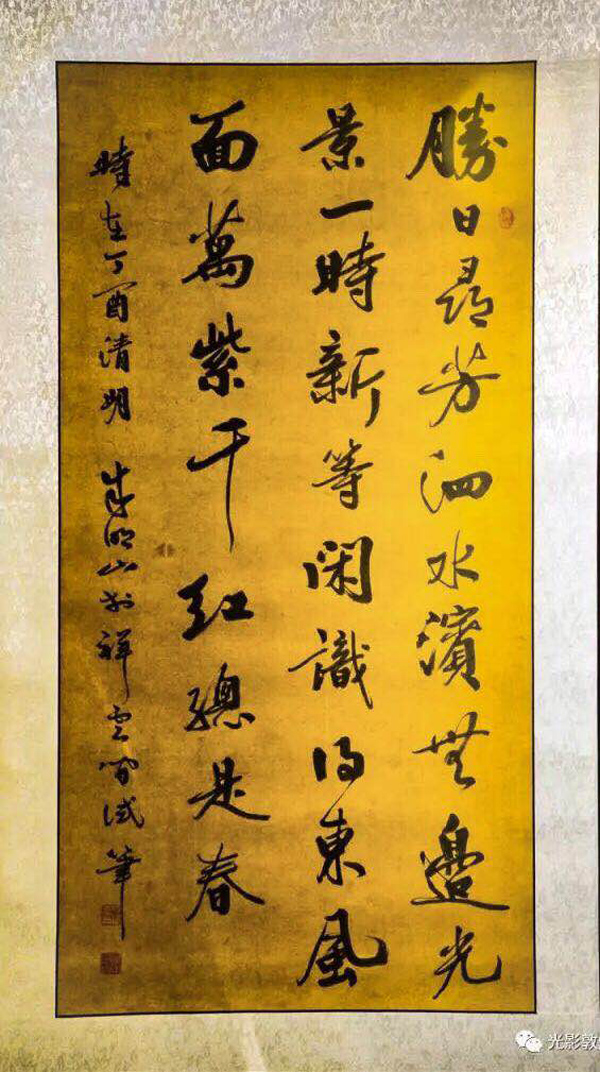 勝日尋芳泗水濱無邊光
景一時新等閑識得東風
面萬紫千紅總是春
時在丁酉清明 朱明山於祥雲閣試筆
光影敦